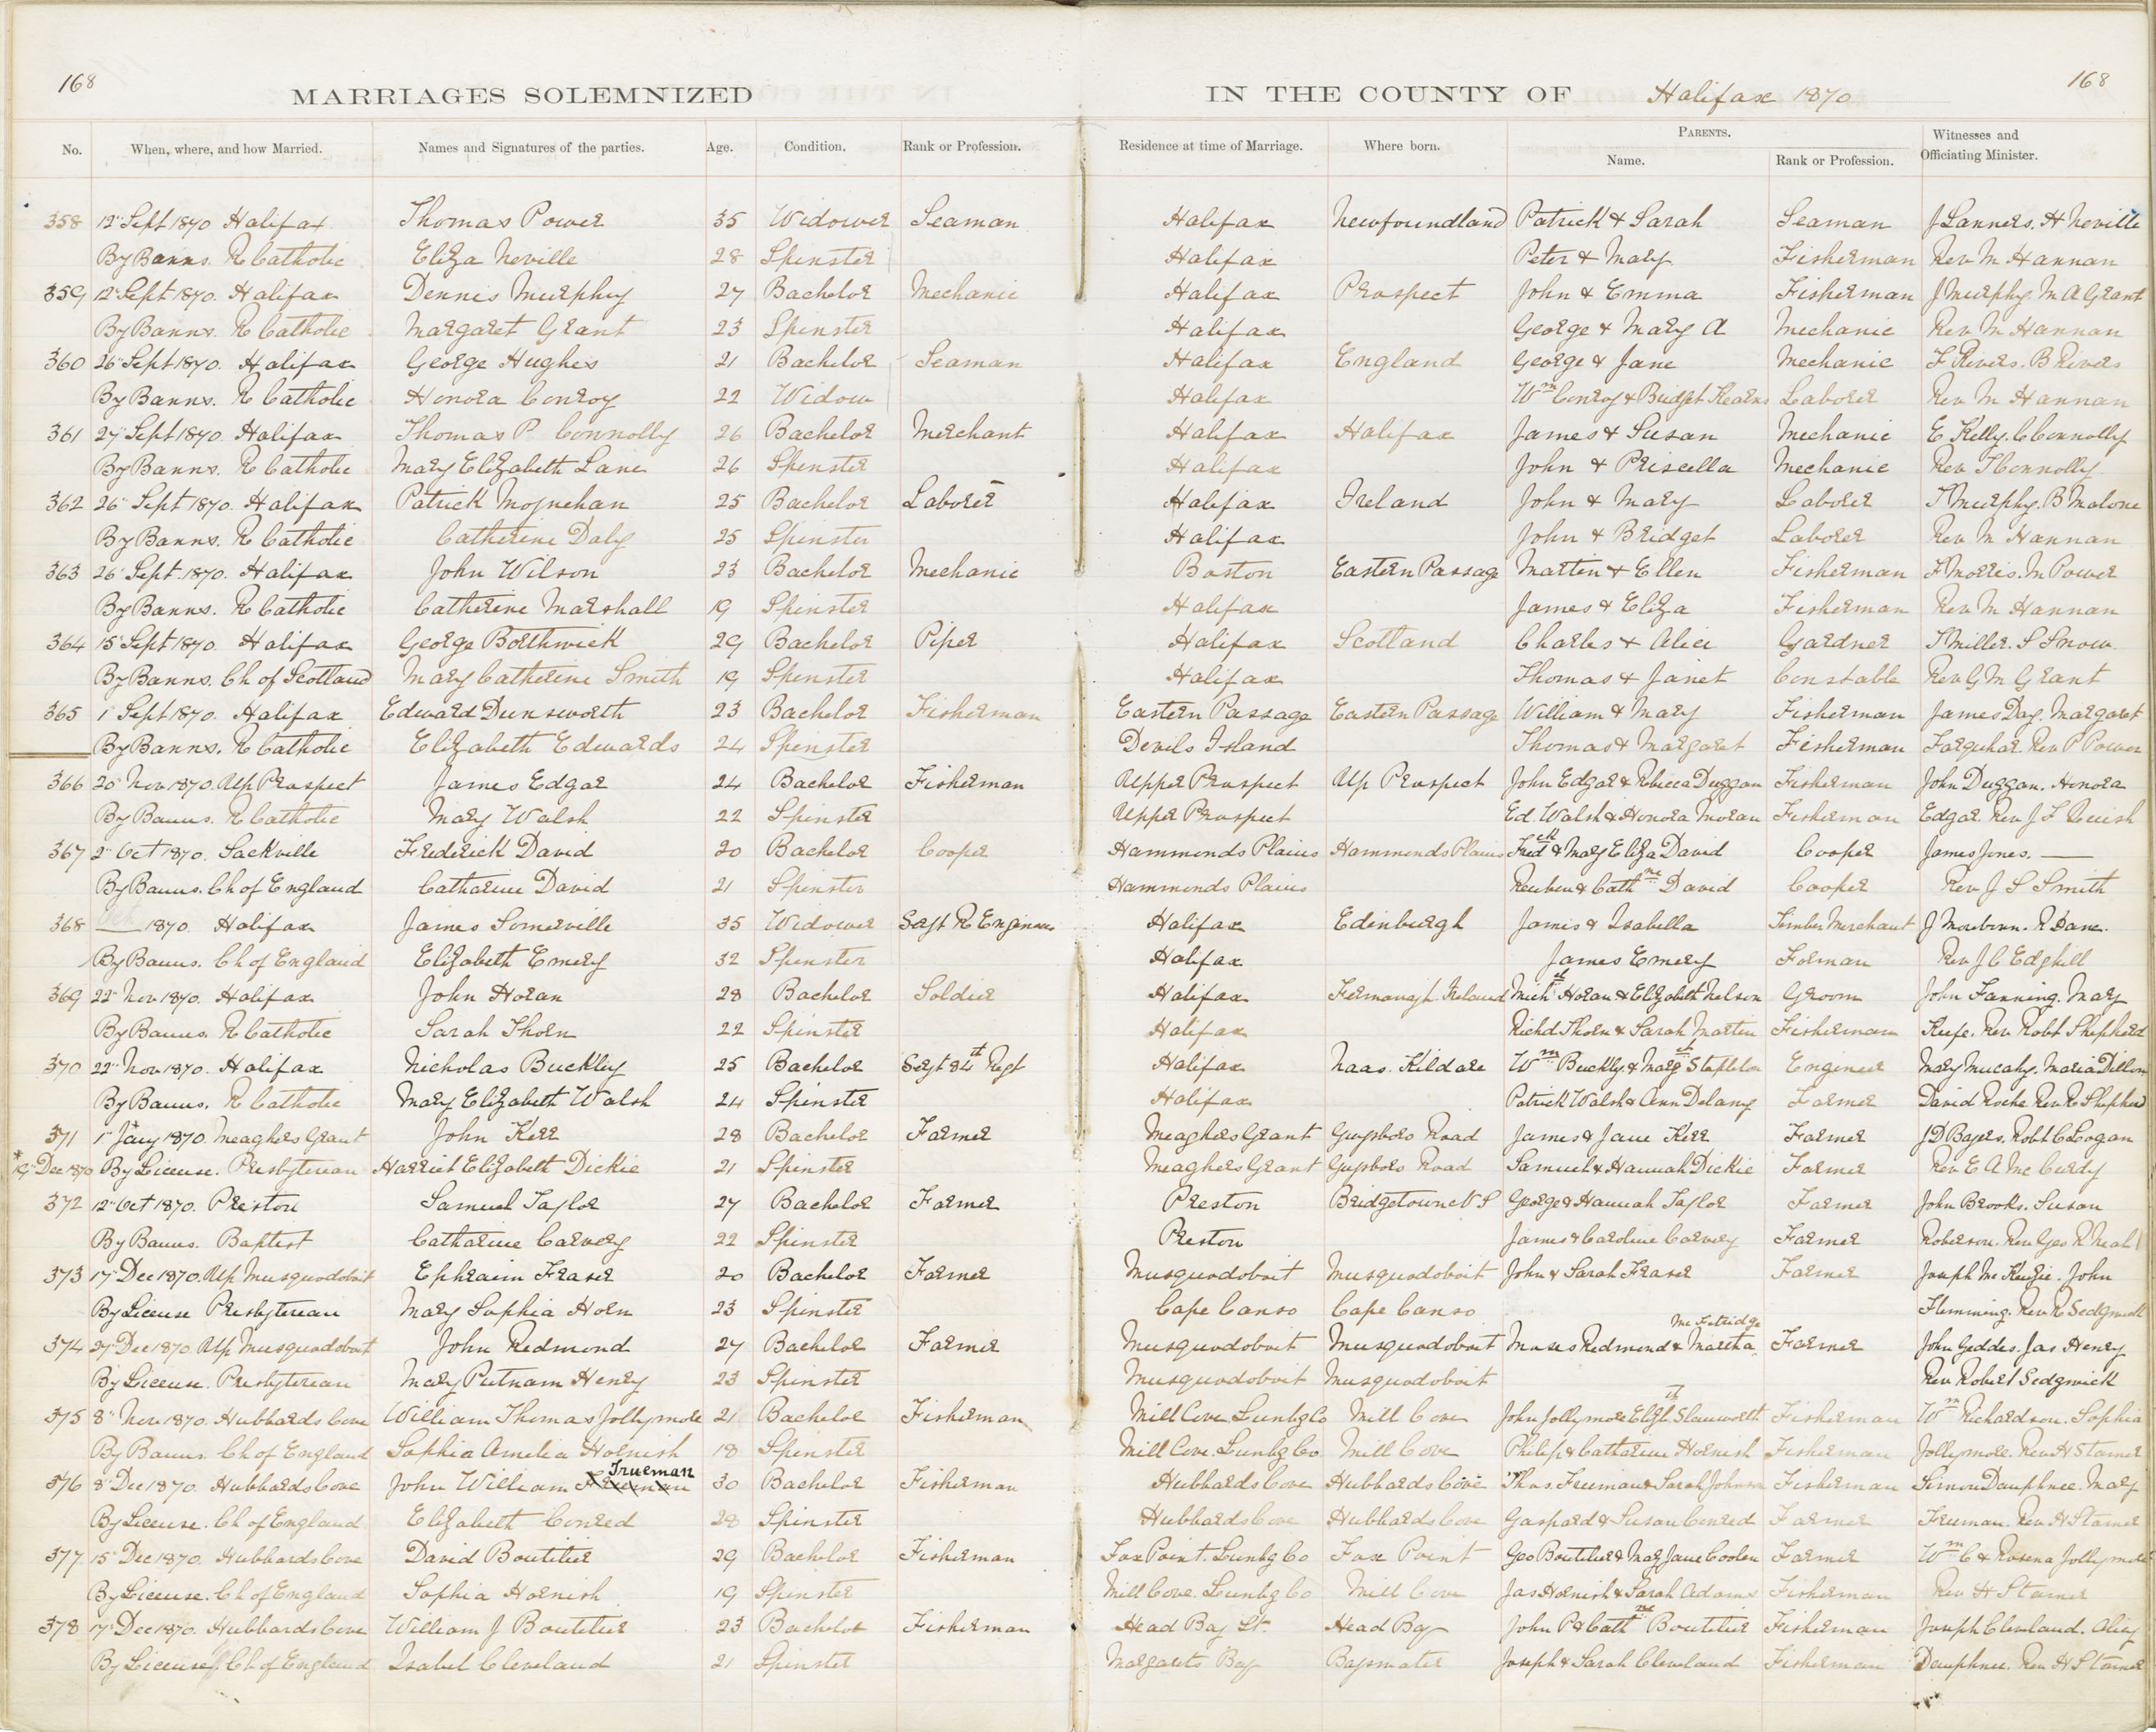 168
168
MARRIAGES SOLEMNIZED IN THE COUNTY OF Halifax 1870
No. When, where, and how Married. Names and Signatures of the parties. Age. Condition. Rank or Profession. Residence at time of Marriage. Where born. PARENTS. Name. Rank or Profession. Witnesses and Officiating Minister.
358 12" Sept 1870 Halifax Thomas Power 35 Widower Seaman Halifax Newfoundland Patrick & Sarah Seaman J Lanners. H Neville
By Banns. R Catholic Eliza Neville 28 Spinster Halifax Peter & Mary Fisherman Rev M Hannan
359 12" Sept 1870. Halifax Dennis Murphy 27 Bachelor Mechanic Halifax Prospect John & Emma Fisherman J Murphy. M A Grant
By Banns. R Catholic Margaret Grant 23 Spinster Halifax George & Mary A Mechanic Rev M Hannan
360 26" Sept 1870. Halifax George Hughes 21 Bachelor Seaman Halifax England George & Jane Mechanic F Rivers. B Rivers
By Banns. R Catholic Honora Conroy 22 Widow Halifax Wm Conroy & Bridget Kearns Laborer Rev M Hannan
361 27" Sept 1870. Halifax Thomas P Connolly 26 Bachelor Merchant Halifax Halifax James & Susan Mechanic E Kelly. C Connolly
By Banns. R Catholic Mary Elizabeth Lane 26 Spinster Halifax John & Priscella Mechanic Rev T Connolly
362 26" Sept 1870. Halifax Patrick Moynehan 25 Bachelor Laborer Halifax Ireland John & Mary Laborer T Murphy. B Malone
By Banns. R Catholic Catherine Daly 25 Spinster Halifax John & Bridget Laborer Rev M Hannan
363 26" Sept. 1870. Halifax John Wilson 23 Bachelor Mechanic Boston Eastern Passage Martin & Ellen Fisherman F Morris. M Power
By Banns. R Catholic Catherine Marshall 19 Spinster Halifax James & Eliza Fisherman Rev M Hannan
364 15" Sept 1870. Halifax George Borthwick 29 Bachelor Piper Halifax Scotland Charles & Alice Gardner T Miller. S Snow.
By Banns. Ch of Scotland Mary Catherine Smith 19 Spinster Halifax Thomas & Janet Constable Rev G M Grant
365 1" Sept 1870. Halifax Edward Dunsworth 23 Bachelor Fisherman Eastern Passage Eastern Passage William & Mary Fisherman James Day. Margaret
By Banns. R Catholic Elizabeth Edwards 24 Spinster Devils Island Thomas & Margaret Fisherman Farquhar. Rev P Power
366 20" Nov 1870. Up Prospect James Edgar 24 Bachelor Fisherman Upper Prospect Up Prospect John Edgar & Rebecca Duggan Fisherman John Duggan. Honora
By Banns. R Catholic Mary Walsh 22 Spinster Upper Prospect Ed. Walsh & Honora Moran Fisherman Edgar. Rev J L
367 2" Oct 1870. Sackville Frederick David 20 Bachelor Cooper Hammonds Plains Hammonds Plains Fredck & Mary Eliza David Cooper James Jones. —
By Banns. Ch of England Catharine David 21 Spinster Hammonds Plains Reuben & Cathne David Cooper Rev J S Smith
368 1870. Halifax James Somerville 35 Widower Sergt R Engineers Halifax Edinburgh James & Isabella Timber Merchant J R Dane.
By Banns. Ch of England Elizabeth Emery 32 Spinster Halifax James Emery Forman Rev J C Edghill
369 22" Nov 1870. Halifax John Horan 28 Bachelor Soldier Halifax Fermanagh Ireland Michl Horan & Elizabeth Nelson Groom John Fanning. Mary
By Banns. R Catholic Sarah Thorn 22 Spinster Halifax Richd Thorn & Sarah Martin Fisherman Keefe. Rev Robt Shepherd
370 22" Nov 1870. Halifax Nicholas Buckley 25 Bachelor Sergt 84th Regt Halifax Naas. Kildare Wm Buckley & Margt Stapleton Engineer Mary Mucahy. Maria Dillon
By Banns. R Catholic Mary Elizabeth Walsh 24 Spinster Halifax Patrick Walsh & Ann Delany Farmer David Roche. Rev R Shepherd
371 1" *Jany 1870. Meaghers Grant John Kerr 28 Bachelor Farmer Meaghers Grant Guysboro Road James & Jane Kerr Farmer J D Bayers. Robt C Logan
*19" Dec 1870 By License. Presbyterian Harriet Elizabeth Dickie 21 Spinster Meaghers Grant Guysboro Road Samuel & Hannah Dickie Farmer Rev E A McCurdy
372 12" Oct 1870. Preston Samuel Taylor 27 Bachelor Farmer Preston Bridgetown N S George & Hannah Taylor Farmer John Brooks. Susan
By Banns. Baptist Catharine Carvery 22 Spinster Preston James & Caroline Carvery Farmer Roberson. Rev Geo R Neal
373 17" Dec 1870. Up Musquodoboit Ephraim Fraser 20 Bachelor Farmer Musquodoboit Musquodoboit John & Sarah Fraser Farmer Joseph McKenzie. John
By License Presbyterian Mary Sophia Horn 23 Spinster Cape Canso Cape Canso Flemming. Rev R Sedgwick
374 27" Dec 1870 Up Musquodoboit John Redmond 27 Bachelor Farmer Musquodoboit Musquodoboit Moses Redmond & Martha McFetridge Farmer John Geddes. Jas Henry
By License. Presbyterian Mary Putnam Henry 23 Spinster Musquodoboit Musquodoboit Rev Robert Sedgwick
375 8" Nov 1870. Hubbards Cove William Thomas Jollymore 21 Bachelor Fisherman Mill Cove. Lunbg Co Mill Cove John Jollymore Elizth Slauworth Fisherman Wm Richardson. Sophia
By Banns. Ch of England Sophia Amelia Hornish 18 Spinster Mill Cove. Lunbg Co Mill Cove Philip & Catharine Hornish Fisherman Jollymore. Rev H Stamer
376 8" Dec 1870. Hubbards Cove John William Freeman Trueman 30 Bachelor Fisherman Hubbards Cove Hubbards Cove Thos. Freeman & Sarah Johnson Fisherman Simon Dauphnee. Mary
By License. Ch of England Elizabeth Conred 28 Spinster Hubbards Cove Hubbards Cove Gaspard & Susan Conred Farmer Freeman. Rev H Stamer
377 15" Dec 1870. Hubbards Cove David Boutilier 29 Bachelor Fisherman Fox Point. Lunbg Co Fox Point Geo Boutilier & Mary Jane Coolen Farmer Wm C & Rosena Jollymore
By License. Ch of England Sophia Hornish 19 Spinster Mill Cove. Lunbg Co Mill Cove Jas Hornish & Sarah Adams Fisherman Rev H Stamer
378 17" Dec 1870. Hubbards Cove William J Boutilier 23 Bachelor Fisherman Head Bay St. Head Bay John P & Cathne Boutilier Fisherman Joseph Cleveland. Alice
By License. Ch of England Isabel Cleveland 21 Spinster Margarets Bay Bayswater Joseph & Sarah Cleveland Fisherman Dauphnee. Rev H Stamer